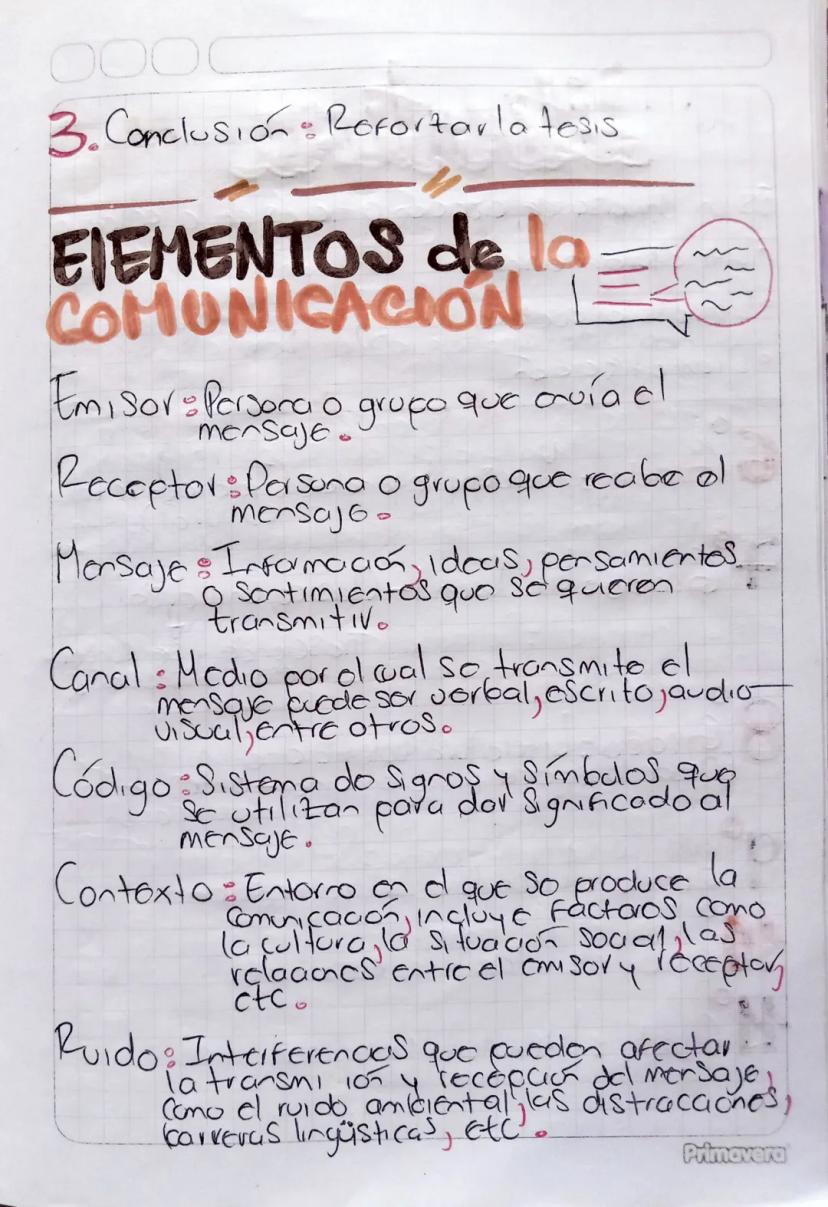 3. Conclusión: Reforzar la tesis
ElEMENTOS de la
COMUNICACIÓN
Emisor: Persona o grupo que envía el
mensaje.
Receptor: Persona o grupo que recibe el
mensaje.
Mensaje: Información, ideas, pensamientos
o sentimientos que se quieren
transmitir.
Canal: Medio por el cual se transmite el
mensaje puede ser verbal, escrito, audio-
visual, entre otros.
Código: Sistema de signos y símbolos que
se utilizan para dar significado al
mensaje.
Contexto: Entorno en el que se produce la
comunicación, incluye factores como
la cultura, la situación social, las
relaciones entre el emisor y receptor,
etc.
Ruido: Interferencias que pueden afectar
la transmi ión y recepción del mensaje,
como el ruido ambiental, las distracciones,
barreras lingüísticas, etc.
Primavera